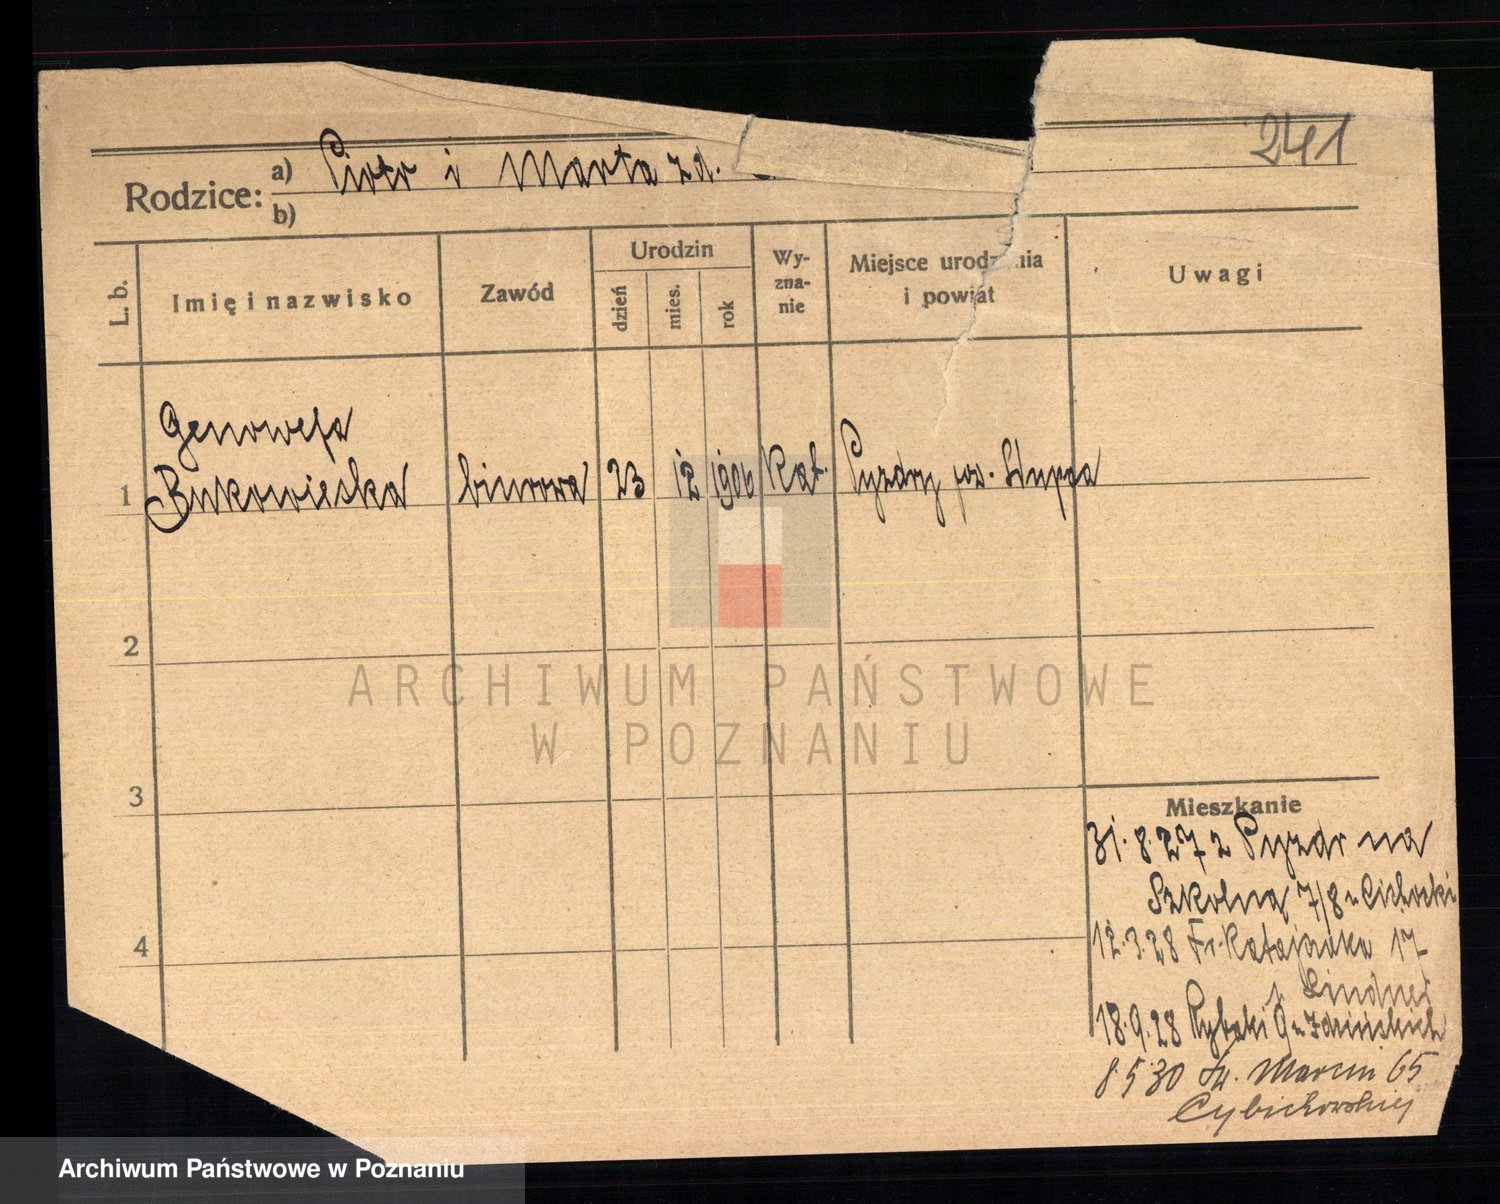 241
Rodzice: a) Piotr i Marta zd.
b)
L. b. Imię i nazwisko Zawód Urodzin dzień mies. rok Wy-zna-nie Miejsce urodzenia i powiat Uwagi
Genowefa
1 Bukowiecka biurowa 23 12 1906 Kat. Pyzdry pow. Słupca
2
3
4
Mieszkanie
31.8.27 z Pyzdr na
Szkolną 7/8 u Cichocki
12.3.28 Fr. Ratajczaka 17
Lindner
18.9.28 Rybaki 9 u
8 5 30 Św. Marcin 65
Cybichowskiej
ARCHIWUM PAŃSTWOWE
W POZNANIU
Archiwum Państwowe w Poznaniu